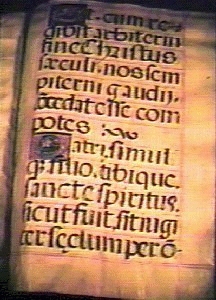 Ut, cum re
dibit arbiter in
fine Christus
sæculi, nos sem
piterni gaudij,
cōcedat esse com
potes.
Patri, simul
q; filio, tibique,
sancte spiritus,
sicut fuit, sit iugi
ter sęclum per ō-